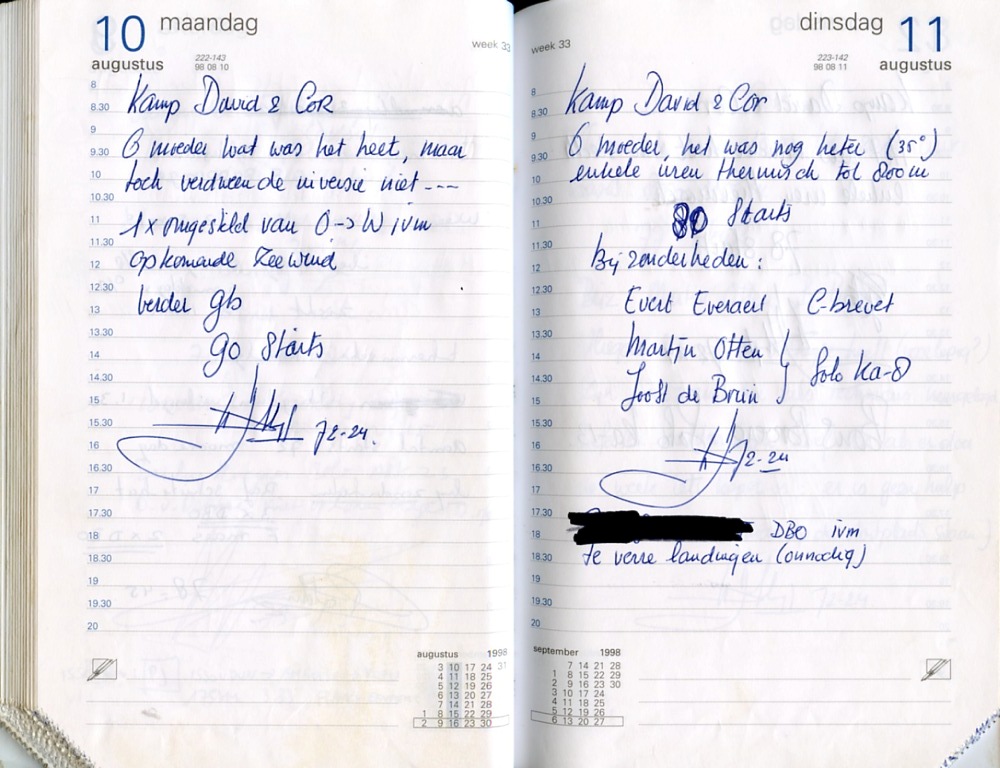 10 maandag
augustus
222-143
98 08 10
week 33
8
8.30
9
9.30
10
10.30
11
11.30
12
12.30
13
13.30
14
14.30
15
15.30
16
16.30
17
17.30
18
18.30
19
19.30
20
Kamp David & Cor
O moeder wat was het heet, maar
toch verdween de inversie niet ---
1x omgesteld van O -> W ivm
opkomende Zeewind
verder gb
90 Starts
72-24.
augustus 1998
3 10 17 24 31
4 11 18 25
5 12 19 26
6 13 20 27
7 14 21 28
1 8 15 22 29
2 9 16 23 30
dinsdag 11
augustus
week 33
223-142
98 08 11
8
8.30
9
9.30
10
10.30
11
11.30
12
12.30
13
13.30
14
14.30
15
15.30
16
16.30
17
17.30
18
18.30
19
19.30
20
Kamp David & Cor
O moeder, het was nog heter (35°)
enkele uren thermisch tot 800 m
80 Starts
Bijzonderheden:
Evert Everaert C-brevet
Martijn Otten
Joost de Bruin } Solo Ka-8
72-24
DBO ivm
te verre landingen (onnodig)
september 1998
7 14 21 28
1 8 15 22 29
2 9 16 23 30
3 10 17 24
4 11 18 25
5 12 19 26
6 13 20 27